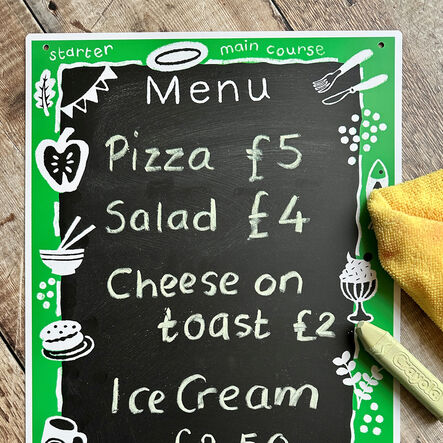 starter main course
Menu
Pizza £5
Salad £4
Cheese on
toast £2
Ice Cream